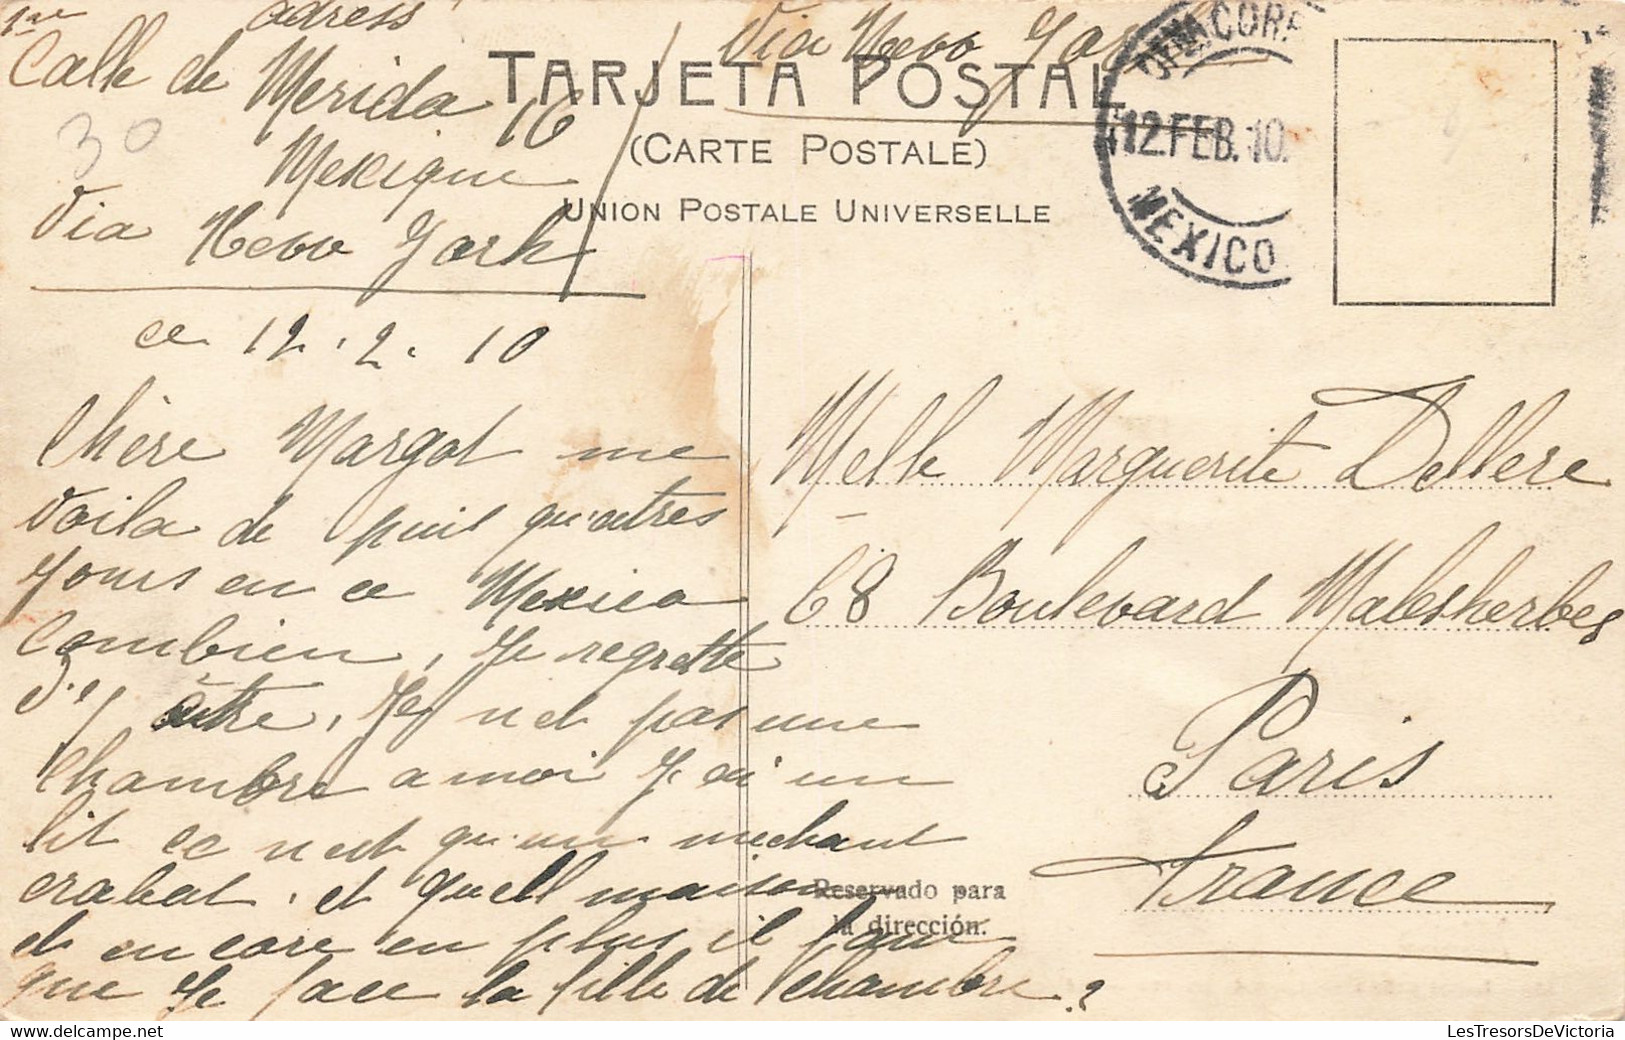 1re adress
Calle de Merida 16
Mexique
Via New York
Via New York
TARJETA POSTAL
(CARTE POSTALE)
UNION POSTALE UNIVERSELLE
12.FEB.10.
MEXICO
30
ce 12.2.10
Chère Margot me
voila de puis quatres
Jours en ce Mexico
Combien, Je regrette
d'y être, Je n est pas une
Chambre a moi J ai un
lit ce n est qu'un mechant
crabat, et quell maison
et en core en plus il faux
que Je face la fille de chambre?
Melle Marguerite Dellere
68 Boulevard Malesherbes
Paris
France
Reservado para
la dirección.
LesTresorsDeVictoria
delcampe.net